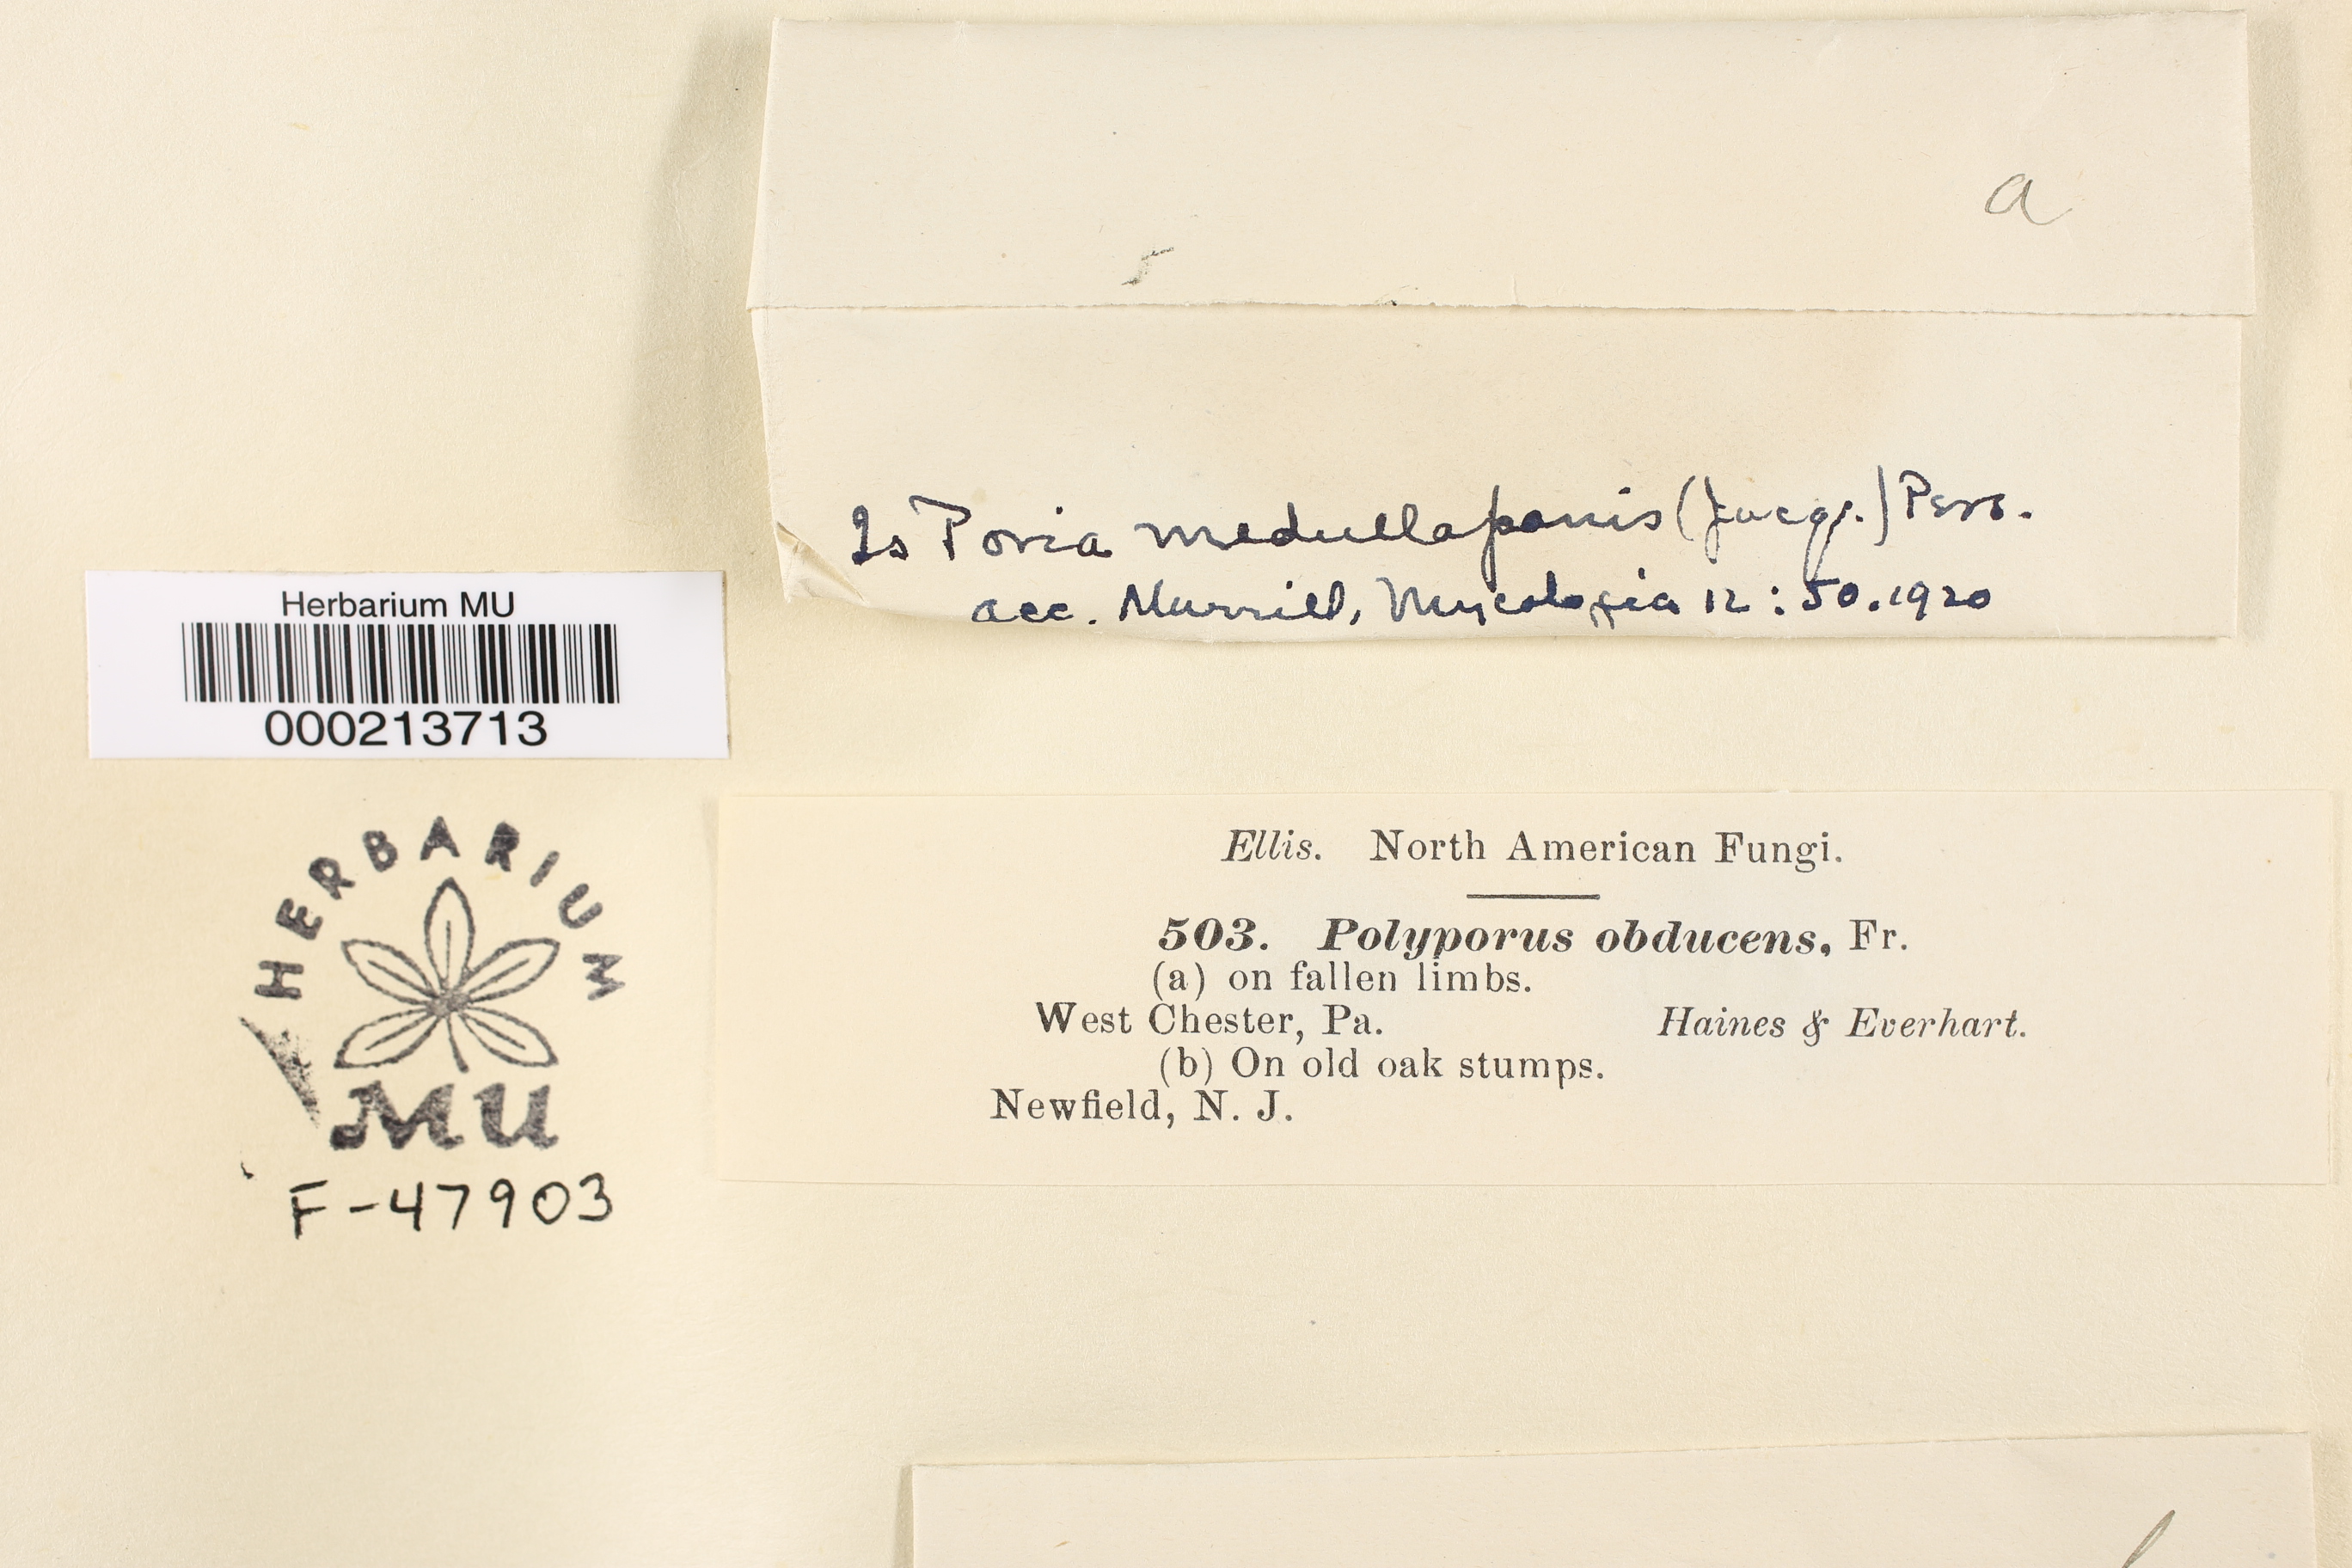 a
Is Poria medullapanis (Jacq.) Pers.
acc. Murrill, Mycologia 12:50.1920
Herbarium MU
000213713
HERBARIUM
MU
F-47903
Ellis. North American Fungi.
503. Polyporus obducens, Fr.
(a) on fallen limbs.
West Chester, Pa. Haines & Everhart.
(b) On old oak stumps.
Newfield, N. J.